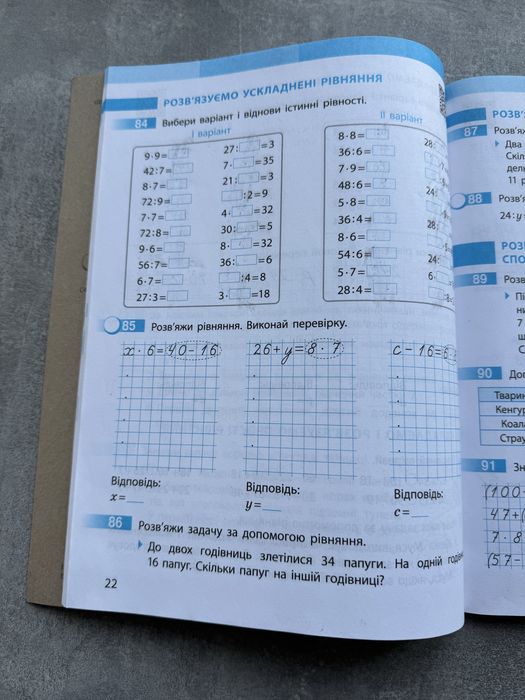 РОЗВ'ЯЗУЄМО УСКЛАДНЕНІ РІВНЯННЯ
84 Вибери варіант і віднови істинні рівності.
І варіант
9·9=
42:7=
8·7=
72:9=
7·7=
72:8=
9·6=
56:7=
6·7=
27:3=
27: =3
7· =35
21: =3
:2=9
4· =32
30: =5
8· =32
36: =6
:4=8
3· =18
ІІ варіант
8·8=
36:6=
7·9=
48:6=
5·8=
36:4=
8·6=
54:6=
5·7=
28:4=
28:
24:
28:
24:
6·
85 Розв'яжи рівняння. Виконай перевірку.
x · 6 = 40 - 16
26 + y = 8 · 7
c - 16 =
Відповідь:
x=
Відповідь:
y=
Відповідь:
c=
86 Розв'яжи задачу за допомогою рівняння.
До двох годівниць злетілися 34 папуги. На одній годів
16 папуг. Скільки папуг на іншій годівниці?
22
РОЗВ'
87 Розв'я
Два
Скіл
дель
11 р
88 Розв'я
24:y
РОЗВ
СПО
89 Розв
Пі
ни
7
90 Доп
Тварин
Кенгур
Коала
Страу
91 Зн
(100-
47+(
7 · 8
(57-